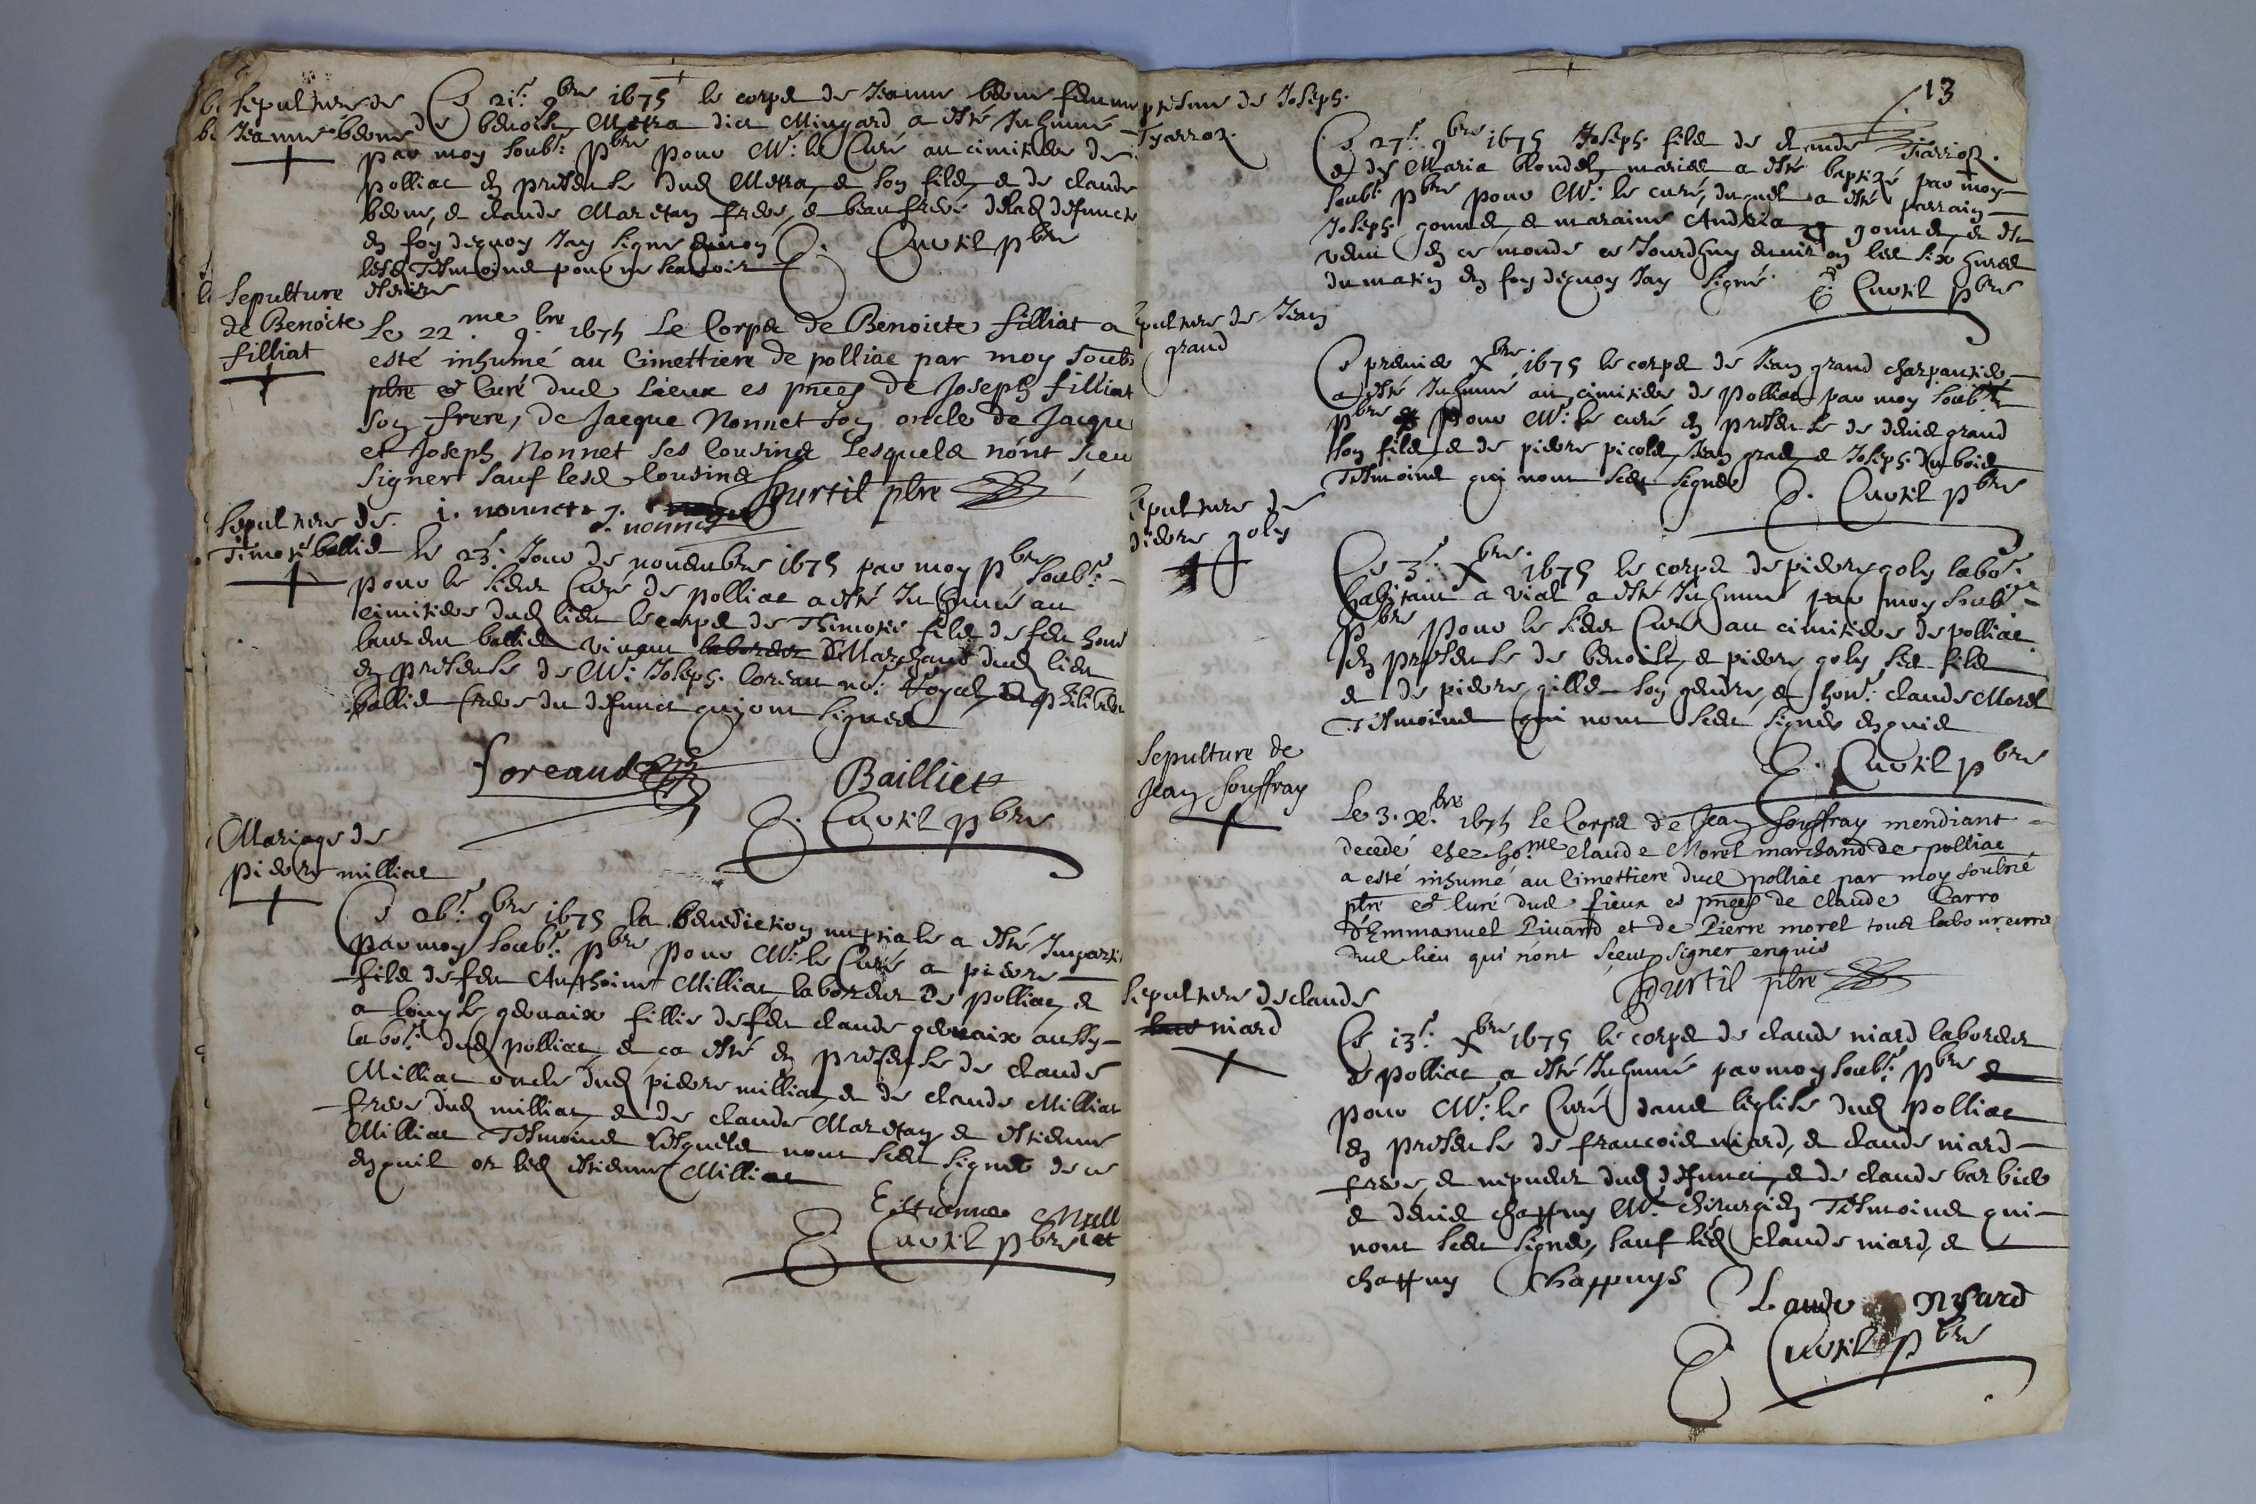 Sepulture de
Jeanne beoue
Ce 21e 9bre 1675 le corps de Jeanne beoue femme
de benoist Metra dict Mingard a esté Inhumé
par moy soubs.é pbre pour Mr. le Curé au cimitiere de
polliac en presence dud Metra, et son fils, et de claude
beoue, et claude Maretan frere, et beaufrere delad defuncte
en foy dequoy Jay signé et non
lesd Tesmoins pour ne scavoir E. Curtil pbre
escrire
Sepulture
de Benoicte
filliat
Le 22.me 9.bre 1675 Le Corps de Benoicte filliat a
esté inhumé au Cimettiere de polliac par moy soubs
ptre et Curé dud Lieux es pnces de Joseph filliat
son frere, de Jacque Nonnet son oncle de Jacque
et Joseph Nonnet ses Cousins Lesquels nónt sceu
signer sauf lesd Cousins Curtil ptre
i. nonnet J.
J. nonnet
Sepulture de
Timotéballie
le 23e Jour de novenbre 1675 par moy pbre soubs.é
pour le sieur Curé de polliac a esté Inhumé au
cimitiere dud lieu le corps de Thimotée fils de feu hon
laurent ballied vivant laboreur Marchand dud lieu
en presence de Mr. Joseph. Loreau no.e Royal, et philibert
ballie frere du defunct qui ont signes
Loreaud
Bailliet
E. Curtil pbre
Mariage de
pierre milliat
Ce 26.e 9bre 1675 la benediction nuptiale a esté Inparti
par moy soubs.é pbre pour Mr. le Curé a pierre
fils de feu Anthoine Milliat, laboreur de polliac, et
a Louyse gervaix fillie de feu claude gervaix aussy
labo.r dud polliat, et ca esté en presence de claude
Milliat oncle dud pierre milliat, et de claude Milliat
frere dud milliat, et de claude Maretan, et estienne
Milliat Tesmoins lesquels nont sceu signer de ce
enquis or led estienne Milliat
Estienne Mill
iat
E Curtil pbre
13
ptisme de Joseph.
Tyarroz.
Ce 27e 9bre 1675 Joseph. fils de Tiarrioz
et de Maria blondel, maries a esté baptizé par moy
soubs.é pbre pour Mr. le curé, duquel a esté parrain
Joseph. gonnet, et maraine Andrea gonnet, et est
venu en ce monde ce Jourdhuy environ les six hures
du matin en foy dequoy Jay signé. E. Curtil pbre
epulture de Jean
grand
Ce premier Xbre 1675 le corps de Jean grand charpantier
a esté Inhumé au cimitiere de Polliac par moy soubs.é
pbre pour Mr. le curé en presence de denis grand
son fils, et de pierre picole, Jean grad et Joseph. dubois
Tesmoins qui nont sceu signer E. Curtil pbre
epulture de
pierre goly
Ce 3e Xbre 1675 le corps de pierre goly labo.r
habitant a vial a esté Inhumé par moy soubs.é
pbre pour le sieur Curé au cimitiere de polliac
en presence de benoist, et pierre goly ses fils
et de pierre gille son gendre, et hon.e claude Morel
Tesmoins qui nont sceu signer enquis
E. Curtil pbre
Sepulture de
Jean Souffray
Le 3. Xe.bre 1675 le Corps de Jean Souffray mendiant
decedé chez ho.me Claude Morel marchand de polliac
a esté inhumé au Cimettiere dud polliac par moy soubné
ptre et Curé dud Lieux es pnces de Claude Carro
d'Emmanuel Pivard et de Pierre morel tous laboureurs
dud lieu qui nónt sçeut signer enquis
Curtil ptre
Sepulture de claude
niard
Ce 13e Xbre 1675 le corps de claude niard laboreur
de polliac a esté Inhumé par moy soubs.é pbre
pour Mr. le Curé dans leglise dud polliac
en presence de francois niard, et claude niard
frere, et nepueu dud defunct, et de claude barbier
et denis chappuy Mr. chirurgien Tesmoins qui
nont sceu signer, sauf led claude niard, et
chappuy Chappuys
Claude Nyard
E Curtil pbre